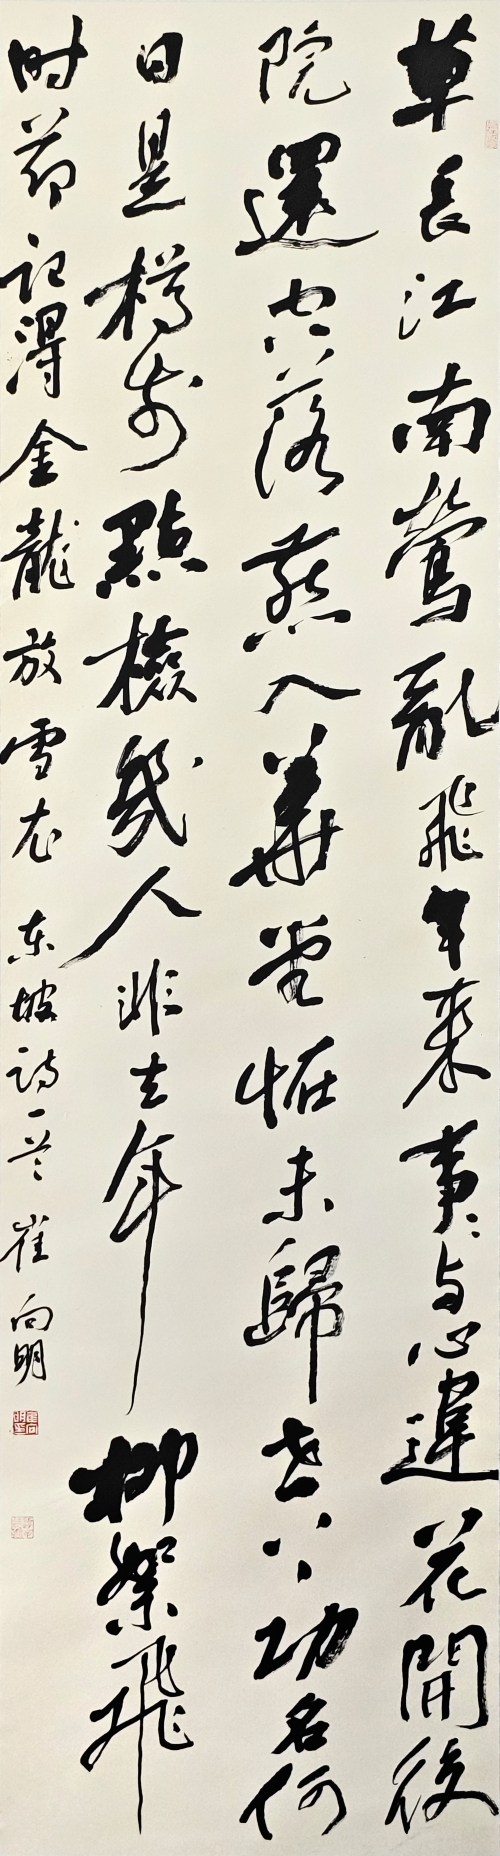 草長江南鶯亂飛年來事々与心違花開後
院還空落燕入華堂恠未歸世上功名何
日是樽前點檢幾人非去年柳絮飛
时節记得金龍放雪衣 东坡诗一首 崔向明